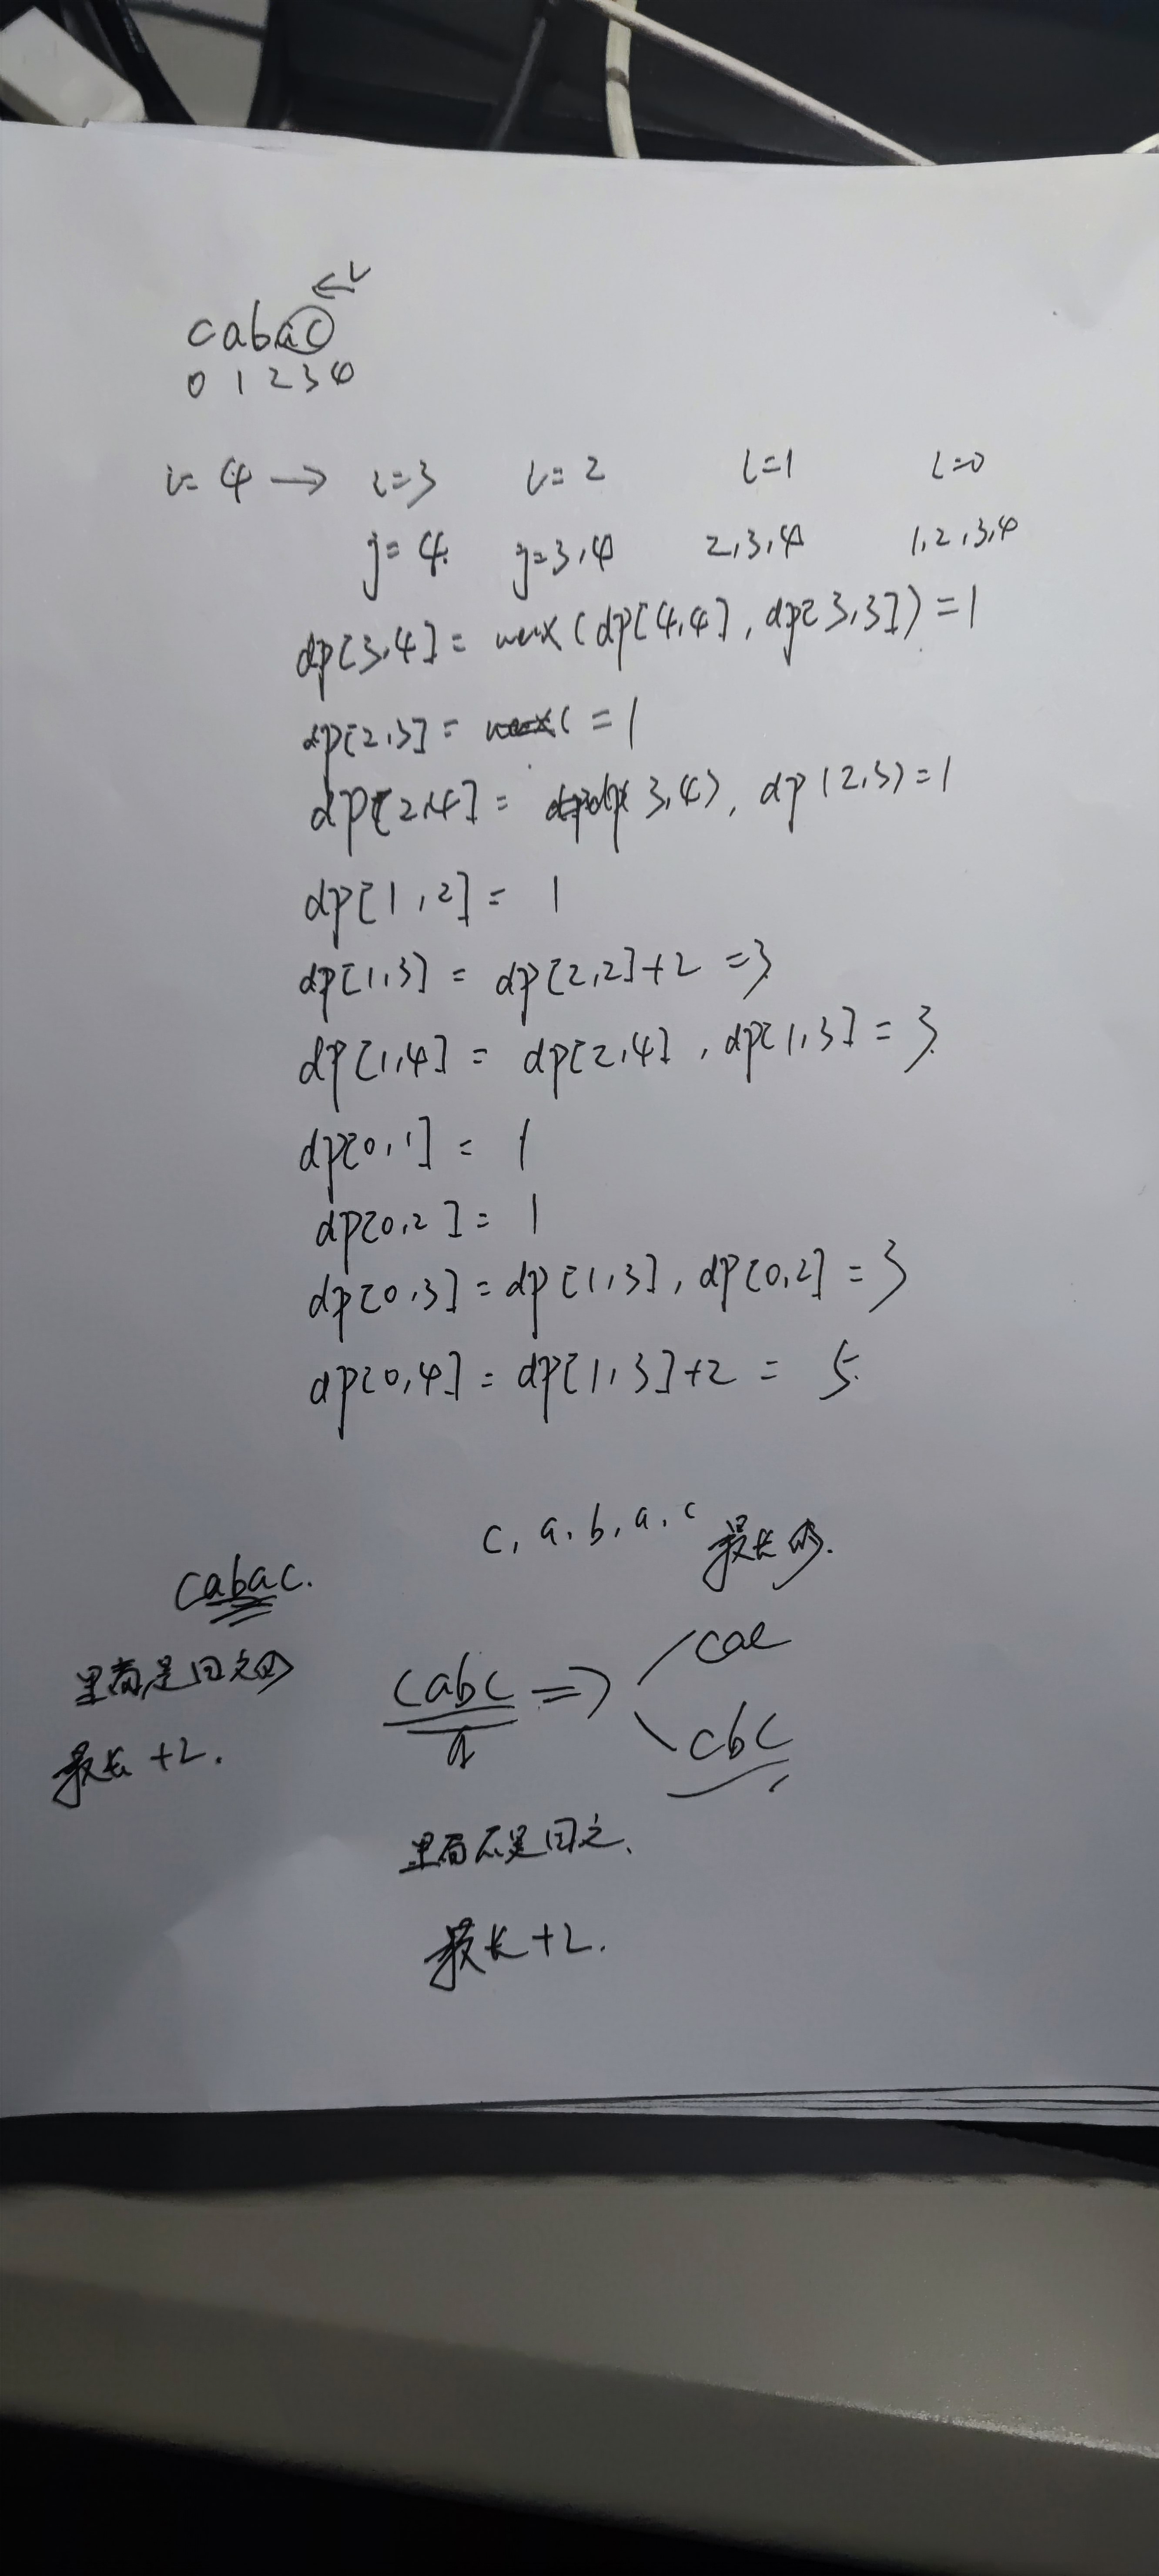 ← i
cabac
0 1 2 3 4
i=4 → i=3 i=2 i=1 i=0
j=4. j=3,4 2,3,4 1,2,3,4
dp[3,4] = max(dp[4,4], dp[3,3]) = 1
dp[2,3] = = 1
dp[2,4] = dp(3,4), dp(2,3) = 1
dp[1,2] = 1
dp[1,3] = dp[2,2]+2 = 3
dp[1,4] = dp[2,4], dp[1,3] = 3
dp[0,1] = 1
dp[0,2] = 1
dp[0,3] = dp[1,3], dp[0,2] = 3
dp[0,4] = dp[1,3]+2 = 5
c, a, b, a, c 最长的.
cabac.
里面是回文的
最长 +2.
cabc ⇒ cac
cbc
里面不是回文.
最长+2.